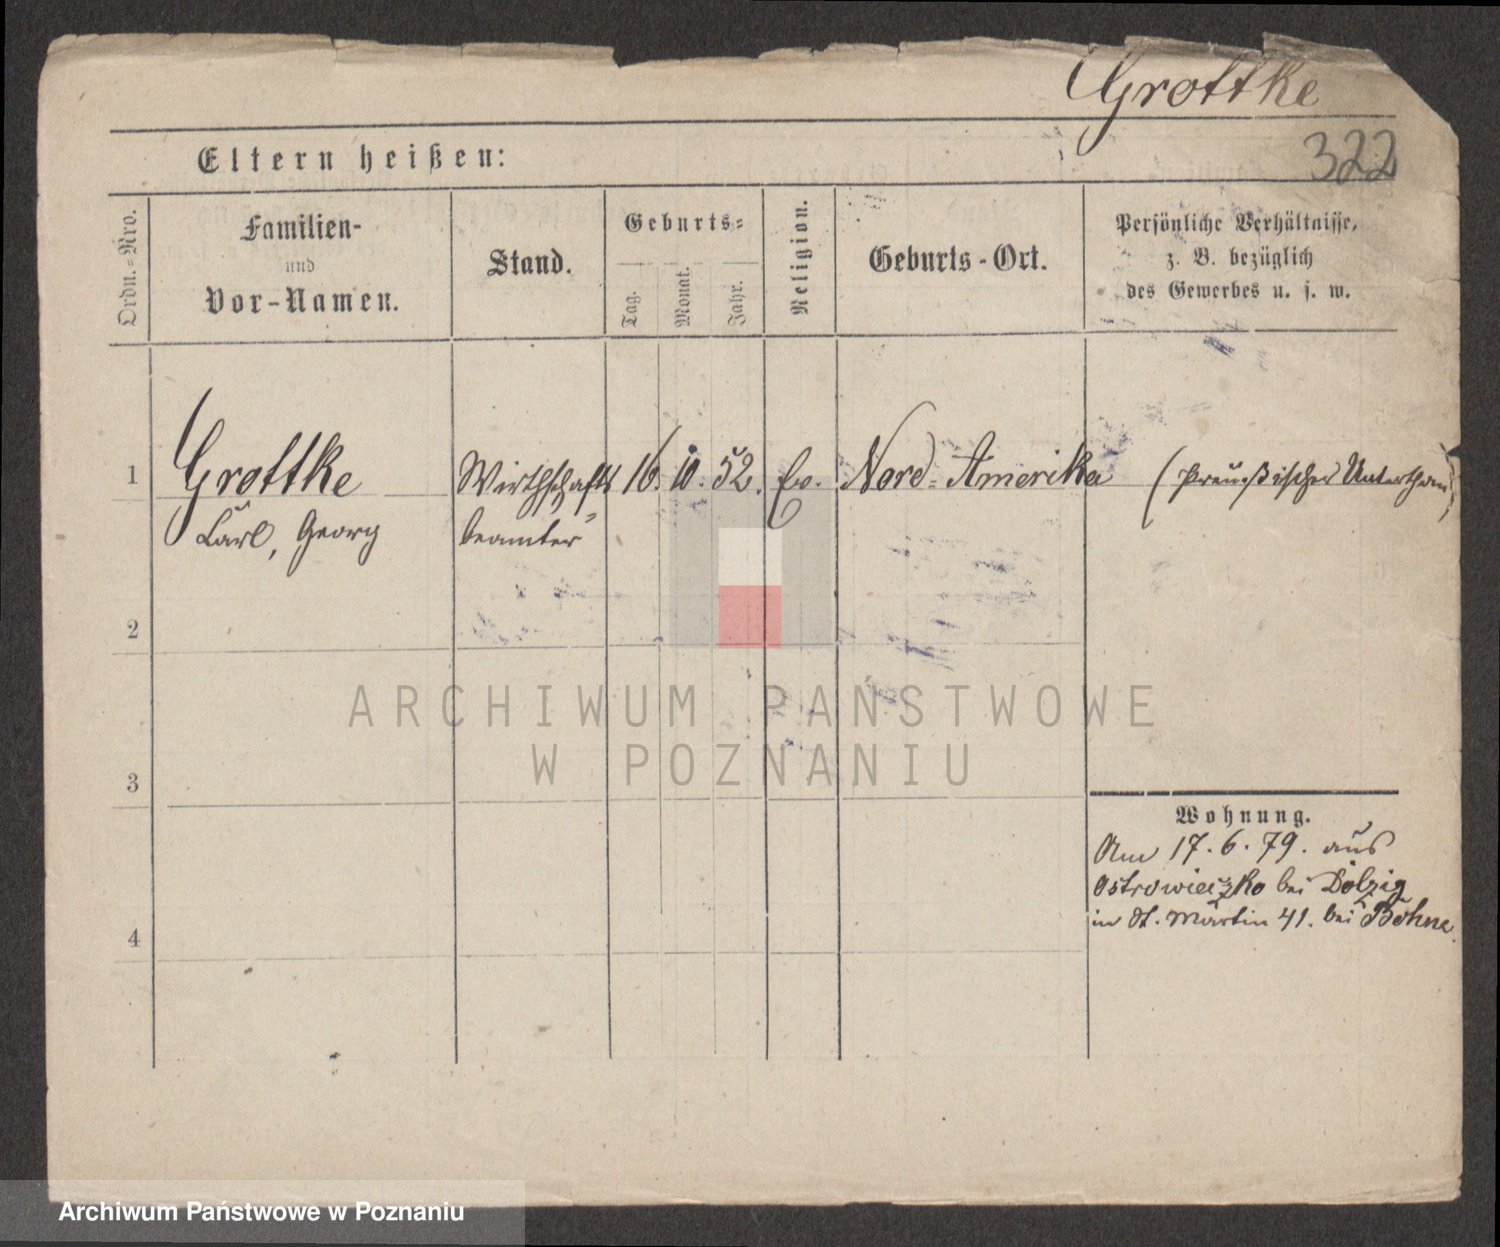 Grottke
322
Eltern heißen:
Ordn.-Nro.
Familien-
und
Vor-Namen.
Stand.
Geburts-
Tag.
Monat.
Jahr.
Religion.
Geburts-Ort.
Persönliche Verhältnisse,
z. B. bezüglich
des Gewerbes u. s. w.
1 Grottke Wirthschafts 16. 10. 52. Ev. Nord-Amerika (Preußischer Unterthan)
Carl, Georg beamter
2
3
4
Wohnung.
Am 17.6.79. aus
Ostrowieczko bei Dolzig
in St. Martin 41. bei Böhne.
ARCHIWUM PAŃSTWOWE
W POZNANIU
Archiwum Państwowe w Poznaniu